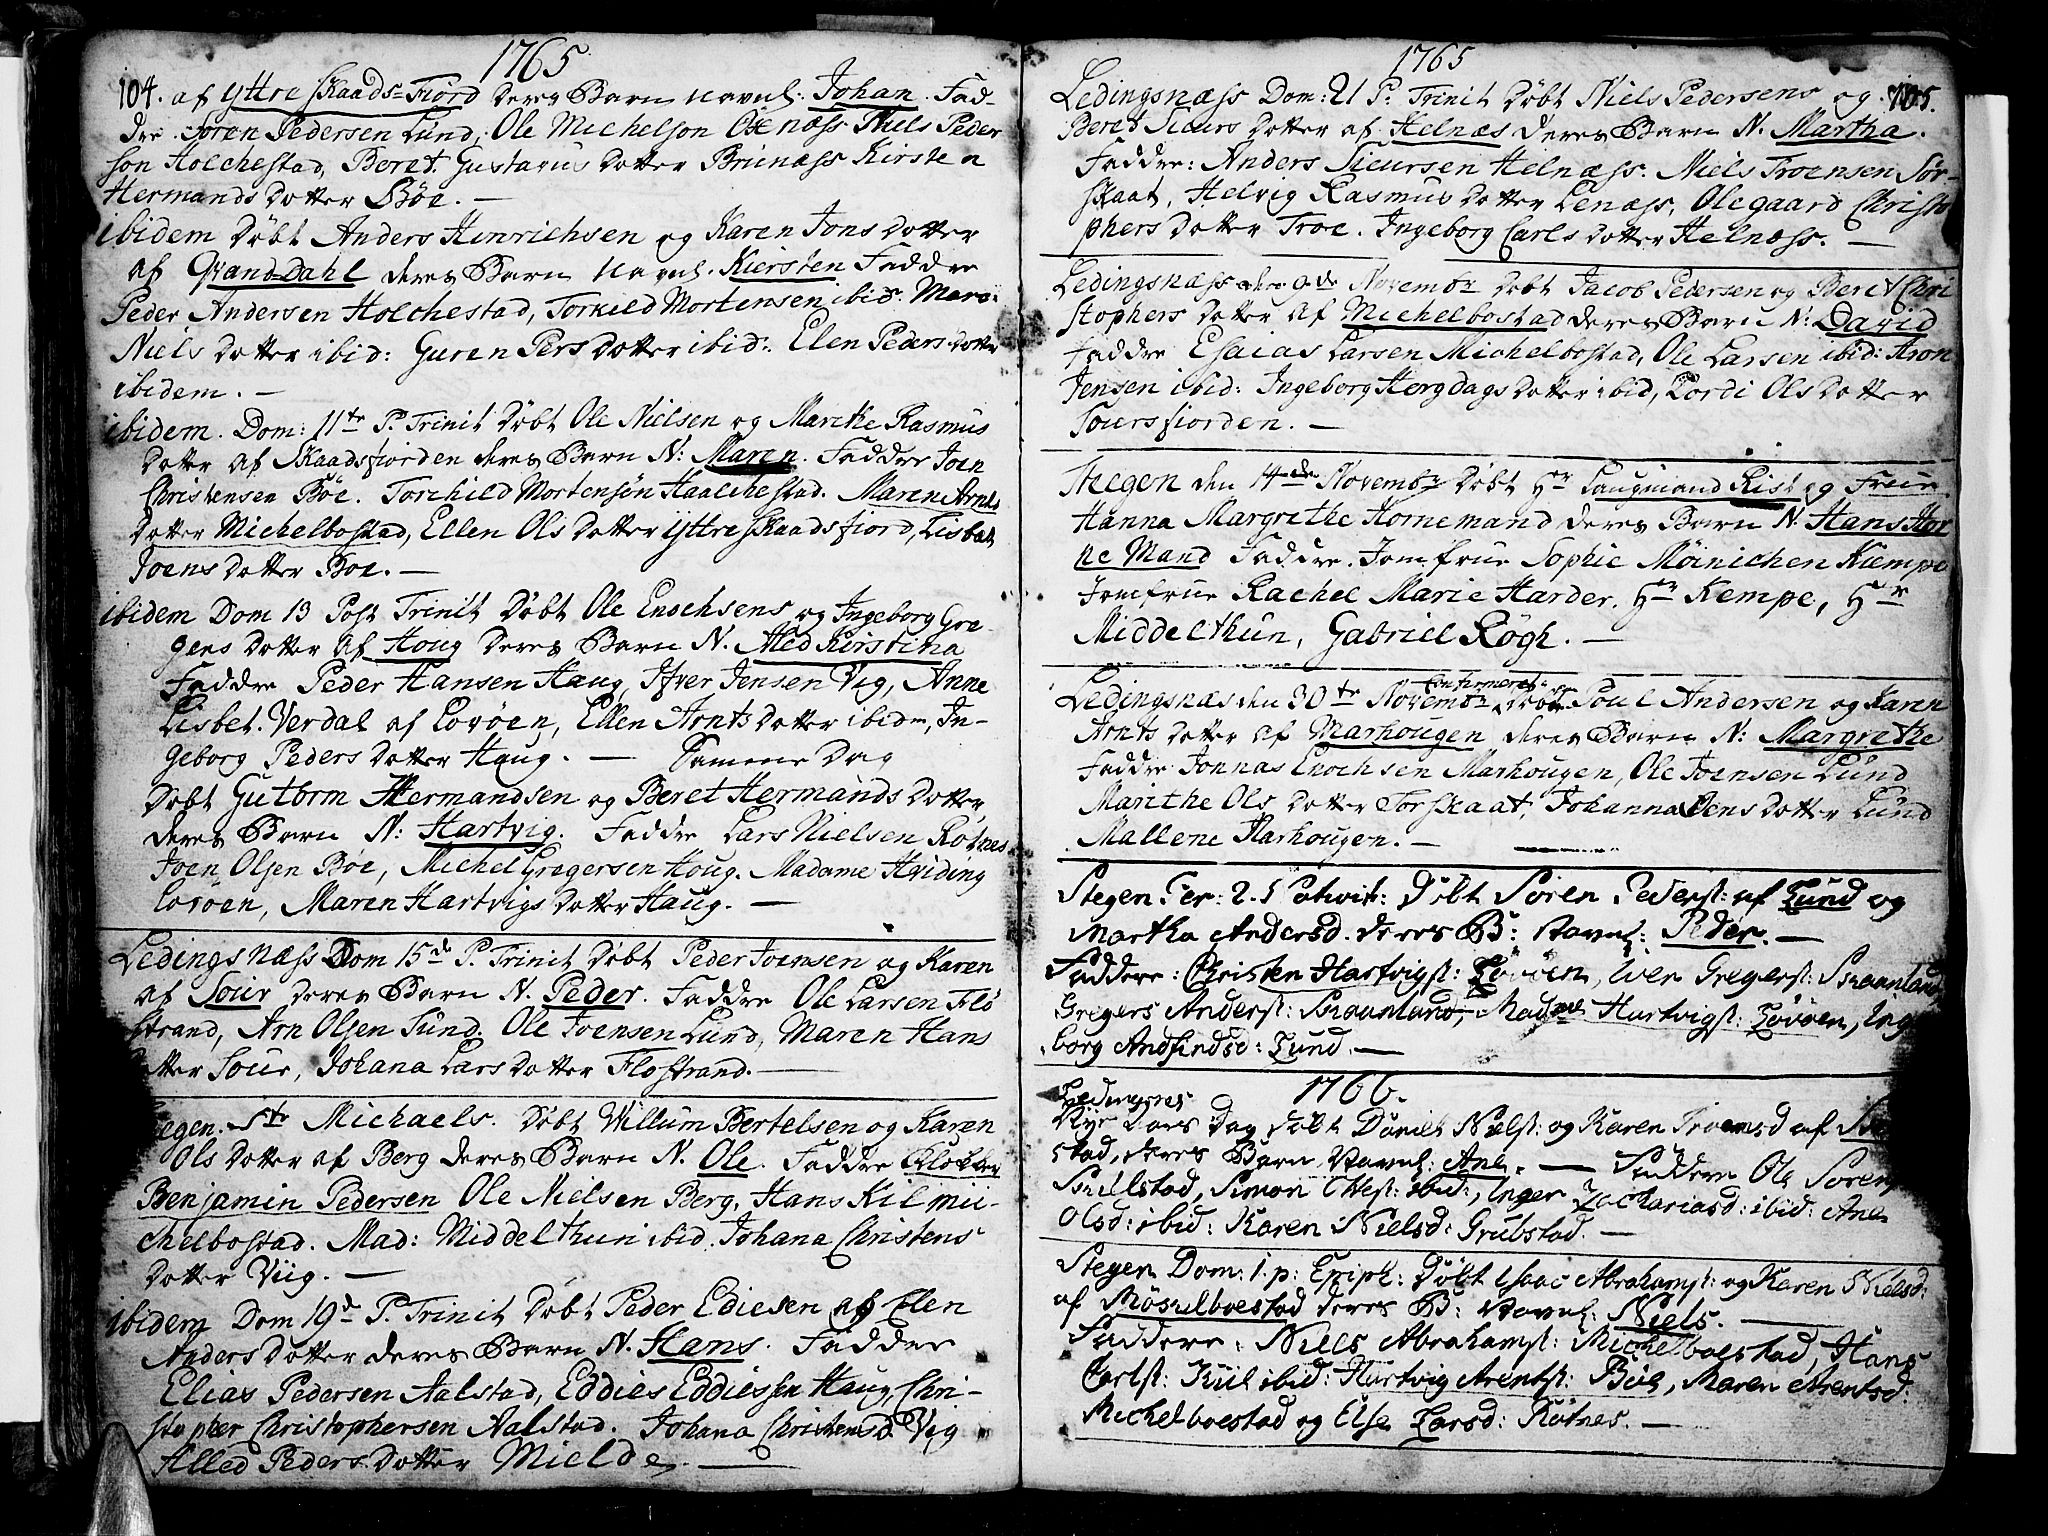 1765
104. af Yttre Skaads-Fiord deres Barn navnl: Johan. Fad-
dre Sören Pedersen Lund, Ole Michelson Öxnæss Niels Peder
son Holchestad, Beret Gustavus Dotter Brunæss Kirsten
Hermands Dotter Böe. —
ibidem Döbt Anders Hinrichsen og Karen Jons Dotter
af Qvand-Dahl deres Barn navnl. Kiersten Faddre
Peder Andersen Holchestad, Torkild Mortensen ibid. Mare:
Niels Dotter ibid: Guren Pers Dotter ibid: Elen Peders Dotter
ibidem. —
ibidem. Dom: 11te P. Trinit Döbt Ole Nielsen og Marithe Rasmus
Dotter af Skaadsfiorden deres Barn N: Maren. Faddre Joen
Christensen Böe. Torchild Mortensön Haalchestad. Maren Arnts
Dotter Michelbostad, Ellen Ols Dotter Yttre Skaadsfiord, Lisbet
Joens Dotter Boe. —
ibidem Dom 13 Post Trinit Döbt Ole Enochsens og Ingeborg Gre-
gens Dotter af Houg deres Barn N. Aled Kirstina
Faddre Peder Hansen Haug, Ifver Jensen Vig, Anne
Lisbet Verdal af Lovöen, Ellen Arnts Dotter ibidm, In-
geborg Peders Dotter Haug. — Samme Dag
Döbt Gutorm Hermandsen og Beret Hermands Dotter
deres Barn N: Hartvig. Faddre Lars Nielsen Rötnes
Joen Olsen Böe, Michel Gregersen Houg. Madame Hviding
Lovöen, Maren Hartvigs Dotter Haug. —
Ledingsnæss Dom 15de P. Trinit Döbt Peder Joensen og Karen
af Sour deres Barn N. Peder. Faddre Ole Larsen Flo
strand, Arn Olsen Lund. Ole Joensen Lund, Maren Hans
otter Sour, Johana Lars Dotter Flostrand. —
egen. Ste Michaels. Döbt Willum Bertelsen og Karen
Ols Dotter af Berg deres Barn N. Ole. Faddre Klokker
Benjamin Pedersen Ole Nielsen Berg, Hans Kil Mi-
chelbostad. Mad: Middelthun ibid. Johana Christens
Dotter Viig. —
ibidem Dom 19de P. Trinit Döbt Peder Ediesen af Elen
Anders Dotter deres Barn N. Hans. Faddre
Elias Pedersen Aalstad, Eddies Eddiessen Haug, Chri-
stopher Christophersen Aalstad. Johana Christensd Vig
Alled Peders Dotter Mielde. —
1765
105.
Ledingsnæss Dom: 21 P: Trinit Döbt Niels Pedersens og
Beret Siurs Dotter af Helnæs deres Barn N. Martha.
Faddre: Anders Siursen Helnæss. Niels Troensen Sör-
skaat, Helvig Rasmus Dotter Lenæss, Olegaard Christo
phers Dotter Troe. Ingeborg Carls Dotter Helnæss. —
Ledingsnæss den 9de Novembr Döbt Jacob Pedersen og Beret Chri
stophers Dotter af Michelbostad deres Barn N: David
Faddre Esaias Larsen Michelbostad, Ole Larsen ibid: Aron
Jensen ibid: Ingeborg Hergdags Dotter ibid, Lordi Ols Dotter
Soursfiorden. —
Stegen den 14de Novembr Döbt Hr Laugmand Rist og Frue
Hanna Margrethe Hornemand deres Barn N. Hans Hor
ne Mand Faddre. Jomfrue Sophie Möinichen Kiempe
Jomfrue Rachel Marie Harder. Hr Kempe, Hr
Middelthun, Gabriel Rögh. —
Confirmeret
Ledingsnæs den 30te Novembr Döbt Poul Andersen og Karen
Arnts Dotter af Marhougen deres Barn N: Margrethe
Faddre Jonnas Enochsen Marhougen, Ole Joensen Lund
Marithe Ols Dotter Torskaat, Johanna Jens Dotter Lund
Mallene Marhougen. —
Stegen Fer: 2. Nativit: Döbt Sören Pederst: af Lund og
Martha Andersd. deres B: Navnl: Peder. —
Faddere: Christen Hartvigst: Lövöen, Iver Gregerst: Braanland
Gregers Anderst: Braanland, Madme Hartvigst: Lövöen, Inge
borg Andfindsd: Lund. —
1766.
Ledingsnes
Nye Aars Dag Döbt Daniel Nielst: og Karen Troensd af
stad, deres Barn Navnl: Ane. — Faddere Ole Sörenst
Snellstad, Simon ibid:, Inger Zachariasd: ibid: Ane
Olsd: ibid: Karen Nielsd: Grubstad. —
Stegen Dom: 1. p: Epiph: Döbt Isaac Abrahamst: og Karen Nielsd:
af Möskelboestad deres B: Navnl: Niels. —
Faddere: Niels Abrahamst: Michelboestad, Hans
Carlst: Kiil ibid: Hartvig Arentst: Böe, Maren Arentsd:
Michelboestad og Else Larsd: Rötnes. —